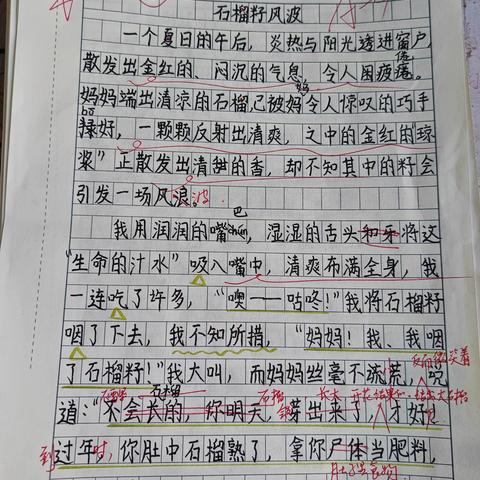 石榴籽风波
一个夏日的午后，炎热与阳光透进窗户，
散发出金红的、闷沉的气息，令人困疲倦。
妈妈端出清凉的石榴，已被妈妈令人惊叹的巧手
剥好，一颗颗反射出清爽，之中的金红的"琼
浆"正散发出清甜的香，却不知其中的籽会
引发一场风浪。波
我用润润的嘴巴chún，湿湿的舌头和牙将这
"生命的汁水"吸入嘴中，清爽布满全身，我
一连吃了许多，"噢——咕咚！"我将石榴籽
咽了下去，我不知所措，"妈妈！我、我咽
了石榴籽！"我大叫，而妈妈丝毫不慌，
道："不会长的，你明天，芽出来了，才好！
过年时，你肚中石榴熟了，拿你尸体当肥料，